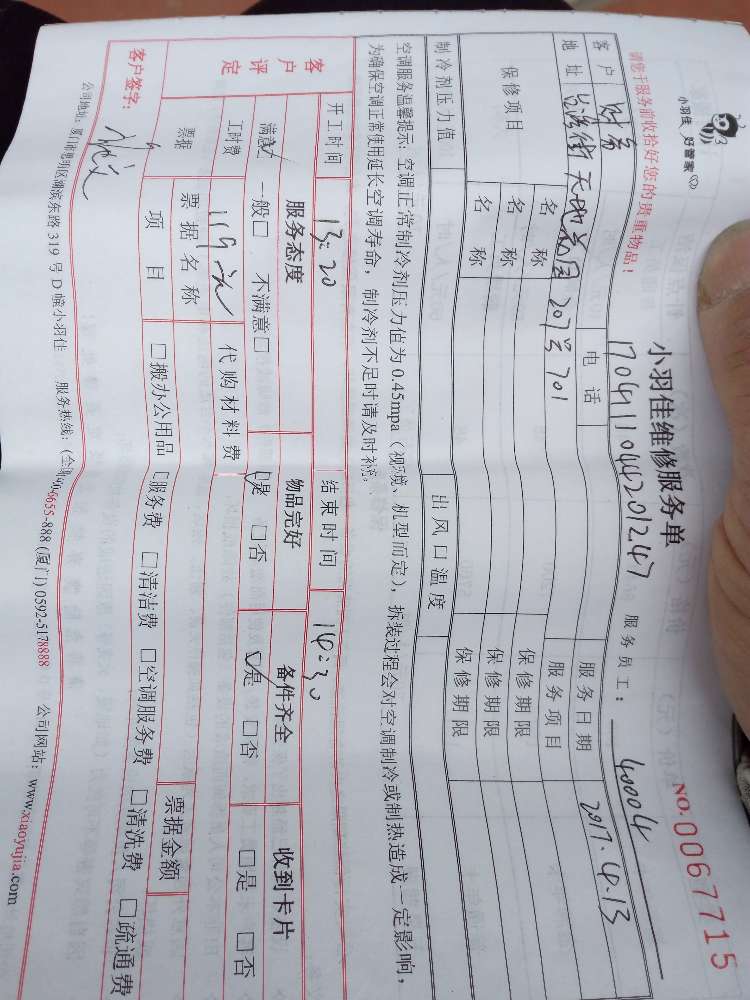 小羽佳 好管家
小羽佳维修服务单
NO.0067715
170411044201247
服务员工: 40004
请您于服务前收拾好您的贵重物品!
客户
电话
服务日期 2017.4.13
地址 台湾街天地花园207号701
服务项目
保修项目
名称 保修期限
名称 保修期限
名称 保修期限
制冷剂压力值 出风口温度
空调服务温馨提示: 空调正常制冷剂压力值为0.45mpa (视环境、机型而定), 拆装过程会对空调制冷或制热造成一定影响,
为确保空调正常使用延长空调寿命, 制冷剂不足时请及时补充。
开工时间 13:20 结束时间 14:30
客户评定
服务态度 物品完好 备件齐全 收到卡片
满意 一般□ 不满意□ □是 □否 □是 □否 □是 □否
工时费 119元 代购材料费
票据 票据名称 票据金额
项目 □搬办公用品 □服务费 □清洁费 □空调服务费 □清洗费 □疏通费
客户签字:
公司地址: 厦门市思明区湖滨东路319号D幢小羽佳 服务热线: (全国) 6655-888 (厦门) 0592-5178888 公司网站: www.xiaoyujia.com